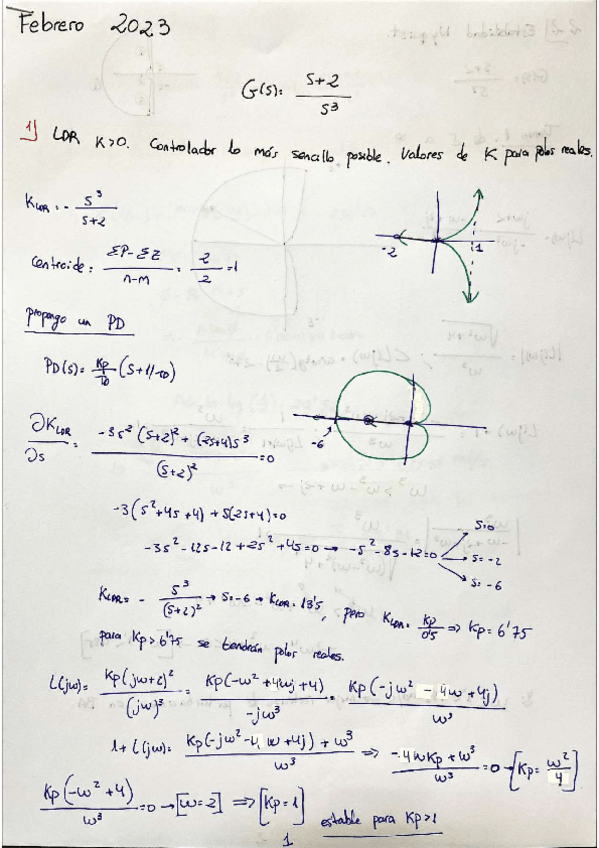 Febrero 2023
G(s): s+2 / s³
1) LDR K>0. Controlador lo más sencillo posible. Valores de K para polos reales.
K_LDR = - s³ / s+2
-2
1
Centroide: ΣP-ΣZ / n-m = 2/2 = 1
propongo un PD
PD(s) = Kp/TD (s+1/TD)
-6
∂K_LDR / ∂s = -3s²(s+2)² + (2s+4)s³ / (s+2)² = 0
-3(s²+4s+4) + s(2s+4)=0
-3s²-12s-12+2s²+4s=0 → -s²-8s-12=0
s=0
s=-2
s=-6
K_LDR = - s³ / (s+2)² → s=-6 → K_LDR = 13'5, pero K_LDR = Kp/0'5 ⇒ Kp=6'75
para Kp>6'75 se tendrán polos reales.
L(jω) = Kp(jω+2)² / (jω)³ = Kp(-ω²+4ωj+4) / -jω³ = Kp(-jω²-4ω+4j) / ω³
1+L(jω): Kp(-jω²-4ω+4j)+ω³ / ω³ ⇒ -4ωKp+ω³ / ω³ = 0 → [Kp = ω²/4]
Kp(-ω²+4) / ω³ = 0 → [ω=2] ⇒ [Kp=1]
estable para Kp>1
1